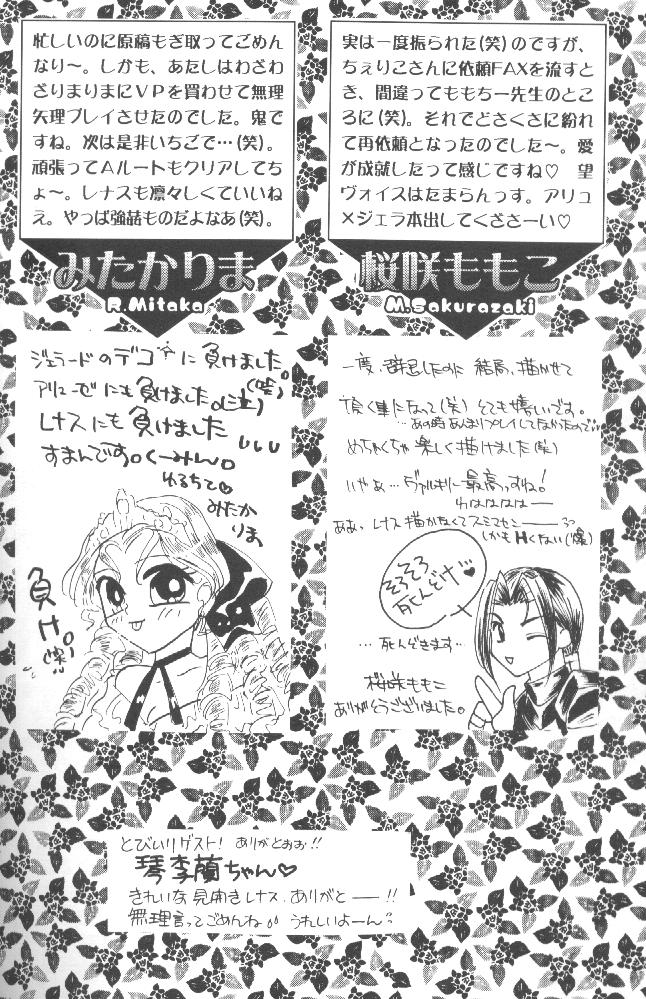 実は一度振られた(笑)のですが、
ちぇりこさんに依頼FAXを流すと
き、間違ってももちー先生のとこ
ろに(笑)。それでどさくさに紛れ
て再依頼となったのでした〜。愛
が成就したって感じですね♡　望
ヴォイスはたまらんっす。アリュ
×ジェラ本出してくださーい♡
桜咲ももこ
M.Sakurazaki
一度、群起したのに 結局、描かせて
頂く事になって(笑) とても嬉しいです。
…あの時あんまりプレイしてなかったので…
めちゃくちゃ楽しく描けました(笑)
いやぁ…ヴァルキリに最高っすね!
わはははは―
ああ、レナス描かなくてスミマセン―――
しかもHくない(爆)
そろそろ
死んどけ♥
…死んどきます…
桜咲ももこ
ありがとうございました。
忙しいのに原稿もぎ取ってごめん
なり〜。しかも、あたしはわざわ
ざりまりまにVPを買わせて無理
矢理プレイさせたのでした。鬼で
すね。次は是非いちごで…(笑)。
頑張ってAルートもクリアしてち
ょ〜。レナスも凛々しくていいね
え。やっぱ強喆ものだよなあ(笑)。
みたかりま
R.Mitaka
ジェラードのデコに負けました。(笑)
アリューゼにも負けました。(泣)
レナスにも負けました
すまんです。くーみん。
ゆるちて♡
みたか
りま
負け。
(爆)
とびいりゲスト! ありがとおお!!
琴李蘭ちゃん♡
きれいな見開きレナス、ありがと――!!
無理言ってごめんね　うれしいよーん